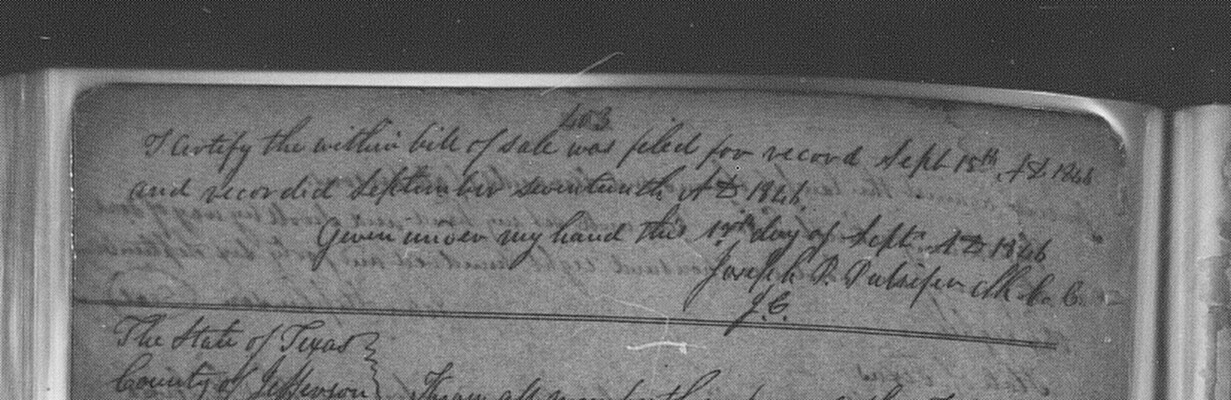 403
I certify the within bill of sale was filed for record Sept 15th AD 1846
and recordid September seventeenth AD 1846.
Given under my hand this 17th day of Sept. AD 1846
Joseph P. Pulsifer Clk. Co. C.
J.C.
The State of Texas
County of Jefferson Know all men by these